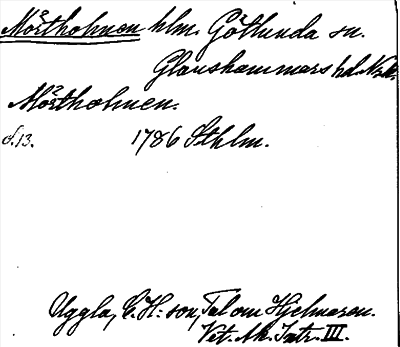 Mörtholmen hlm. Götlunda sn.
Glanshammars hd. Nrk.
Mörtholmen.
d. 13. 1786 Sthlm.
Uggla, C. H:son, Tal om Hjelmaren.
Vet. Ak. Intr. III.